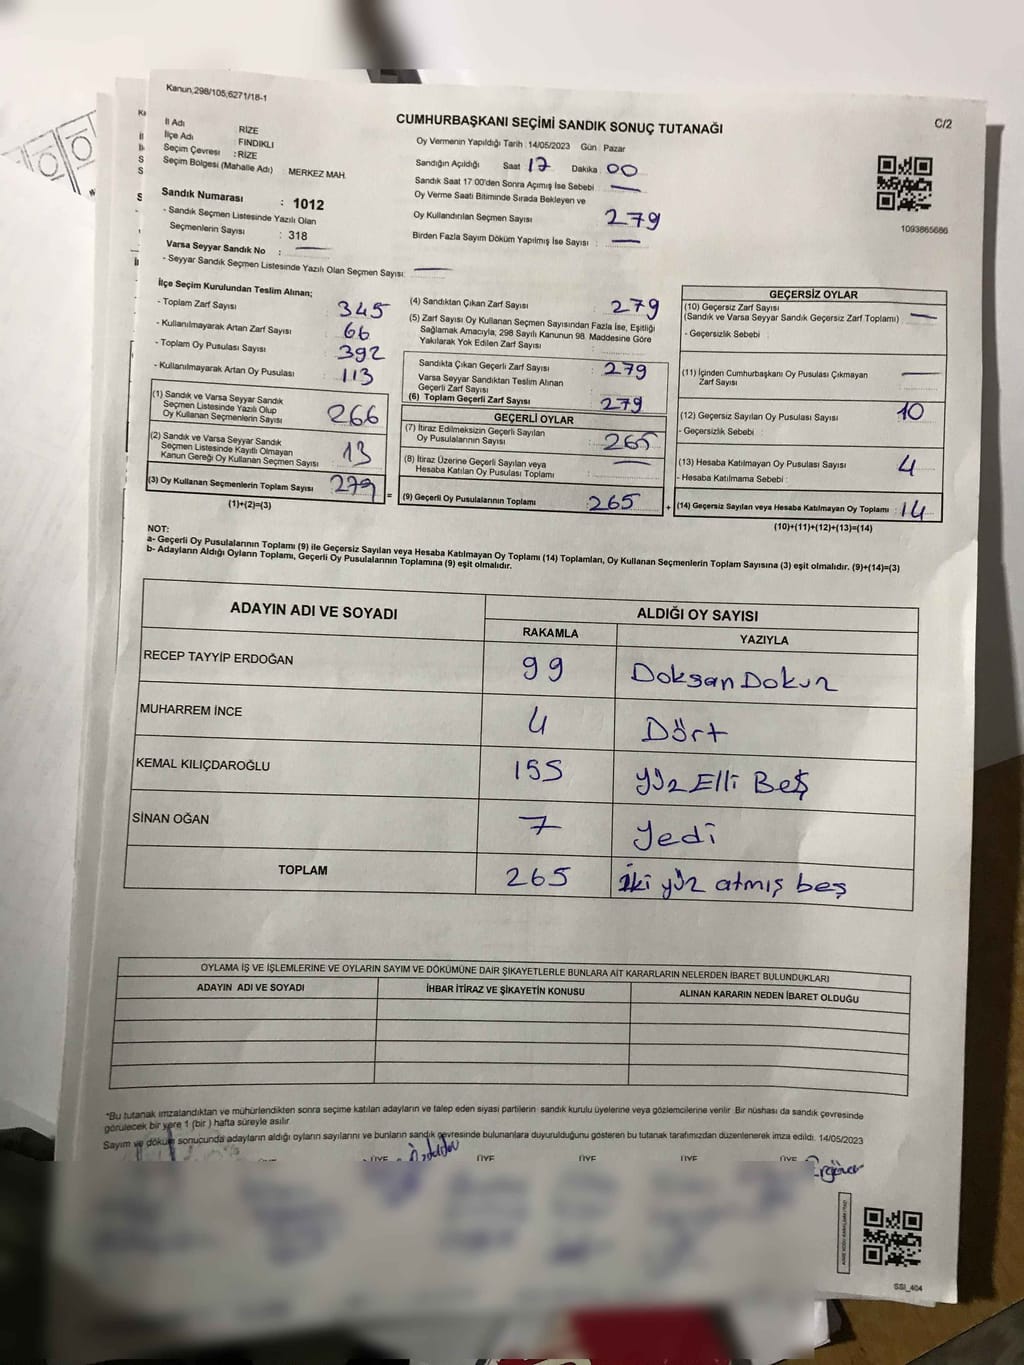 Kanun,298/105;6271/18-1
C/2
CUMHURBAŞKANI SEÇİMİ SANDIK SONUÇ TUTANAĞI
İl Adı RİZE
İlçe Adı : FINDIKLI
Seçim Çevresi : RİZE
Seçim Bölgesi (Mahalle Adı) : MERKEZ MAH.
Oy Vermenin Yapıldığı Tarih : 14/05/2023 Gün : Pazar
Sandığın Açıldığı Saat 17 Dakika 00
Sandık Saat 17:00'den Sonra Açımış İse Sebebi : —
Oy Verme Saati Bitiminde Sırada Bekleyen ve
Oy Kullandırılan Seçmen Sayısı 279
Birden Fazla Sayım Döküm Yapılmış İse Sayısı : —
1093865686
Sandık Numarası : 1012
- Sandık Seçmen Listesinde Yazılı Olan
Seçmenlerin Sayısı : 318
Varsa Seyyar Sandık No : —
- Seyyar Sandık Seçmen Listesinde Yazılı Olan Seçmen Sayısı: —
İlçe Seçim Kurulundan Teslim Alınan;
- Toplam Zarf Sayısı : 345
- Kullanılmayarak Artan Zarf Sayısı : 66
- Toplam Oy Pusulası Sayısı : 392
- Kullanılmayarak Artan Oy Pusulası : 113
(1) Sandık ve Varsa Seyyar Sandık
Seçmen Listesinde Yazılı Olup
Oy Kullanan Seçmenlerin Sayısı : 266
(2) Sandık ve Varsa Seyyar Sandık
Seçmen Listesinde Kayıtlı Olmayan
Kanun Gereği Oy Kullanan Seçmen Sayısı : 13
(3) Oy Kullanan Seçmenlerin Toplam Sayısı : 279
(1)+(2)=(3)
=
(4) Sandıktan Çıkan Zarf Sayısı : 279
(5) Zarf Sayısı Oy Kullanan Seçmen Sayısından Fazla İse, Eşitliği
Sağlamak Amacıyla, 298 Sayılı Kanunun 98. Maddesine Göre
Yakılarak Yok Edilen Zarf Sayısı :
Sandıkta Çıkan Geçerli Zarf Sayısı : 279
Varsa Seyyar Sandıktan Teslim Alınan
Geçerli Zarf Sayısı :
(6) Toplam Geçerli Zarf Sayısı : 279
GEÇERLİ OYLAR
(7) İtiraz Edilmeksizin Geçerli Sayılan
Oy Pusulalarının Sayısı : 265
(8) İtiraz Üzerine Geçerli Sayılan veya
Hesaba Katılan Oy Pusulası Toplamı : —
(9) Geçerli Oy Pusulalarının Toplamı : 265
+
GEÇERSİZ OYLAR
(10) Geçersiz Zarf Sayısı
(Sandık ve Varsa Seyyar Sandık Geçersiz Zarf Toplamı) : —
- Geçersizlik Sebebi :
(11) İçinden Cumhurbaşkanı Oy Pusulası Çıkmayan
Zarf Sayısı : —
(12) Geçersiz Sayılan Oy Pusulası Sayısı : 10
- Geçersizlik Sebebi :
(13) Hesaba Katılmayan Oy Pusulası Sayısı : 4
- Hesaba Katılmama Sebebi :
(14) Geçersiz Sayılan veya Hesaba Katılmayan Oy Toplamı : 14
(10)+(11)+(12)+(13)=(14)
NOT:
a- Geçerli Oy Pusulalarının Toplamı (9) ile Geçersiz Sayılan veya Hesaba Katılmayan Oy Toplamı (14) Toplamları, Oy Kullanan Seçmenlerin Toplam Sayısına (3) eşit olmalıdır. (9)+(14)=(3)
b- Adayların Aldığı Oyların Toplamı, Geçerli Oy Pusulalarının Toplamına (9) eşit olmalıdır.
ADAYIN ADI VE SOYADI ALDIĞI OY SAYISI
RAKAMLA YAZIYLA
RECEP TAYYİP ERDOĞAN 99 Doksan Dokuz
MUHARREM İNCE 4 Dört
KEMAL KILIÇDAROĞLU 155 Yüz Elli Beş
SİNAN OĞAN 7 Yedi
TOPLAM 265 İki yüz atmış beş
OYLAMA İŞ VE İŞLEMLERİNE VE OYLARIN SAYIM VE DÖKÜMÜNE DAİR ŞİKAYETLERLE BUNLARA AİT KARARLARIN NELERDEN İBARET BULUNDUKLARI
ADAYIN ADI VE SOYADI İHBAR İTİRAZ VE ŞİKAYETİN KONUSU ALINAN KARARIN NEDEN İBARET OLDUĞU
*Bu tutanak imzalandıktan ve mühürlendikten sonra seçime katılan adayların ve talep eden siyasi partilerin sandık kurulu üyelerine veya gözlemcilerine verilir. Bir nüshası da sandık çevresinde
görülecek bir yere 1 (bir ) hafta süreyle asılır.
Sayım ve döküm sonucunda adayların aldığı oyların sayılarını ve bunların sandık çevresinde bulunanlara duyurulduğunu gösteren bu tutanak tarafımızdan düzenlenerek imza edildi. 14/05/2023
ÜYE ÜYE ÜYE ÜYE ÜYE
SSI_404